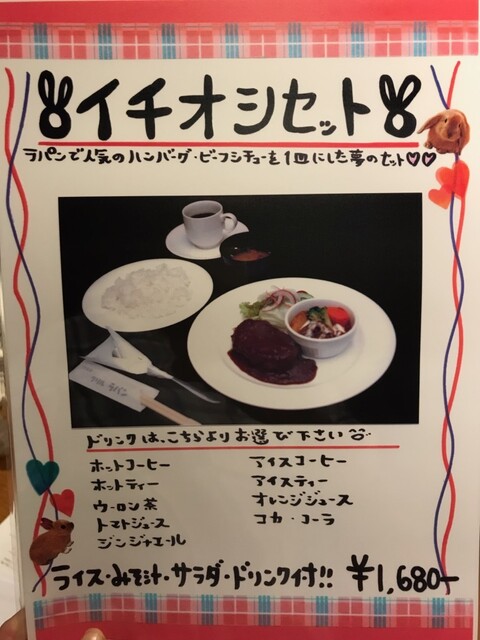 イチオシセット
ラパンで人気のハンバーグ・ビーフシチューを1皿にした夢のセット♡♡
ドリンクは、こちらよりお選び下さい
ホットコーヒー
ホットティー
ウーロン茶
トマトジュース
ジンジャエール
アイスコーヒー
アイスティー
オレンジジュース
コカ・コーラ
ライス・みそ汁・サラダ・ドリンク付!! ¥1,680-